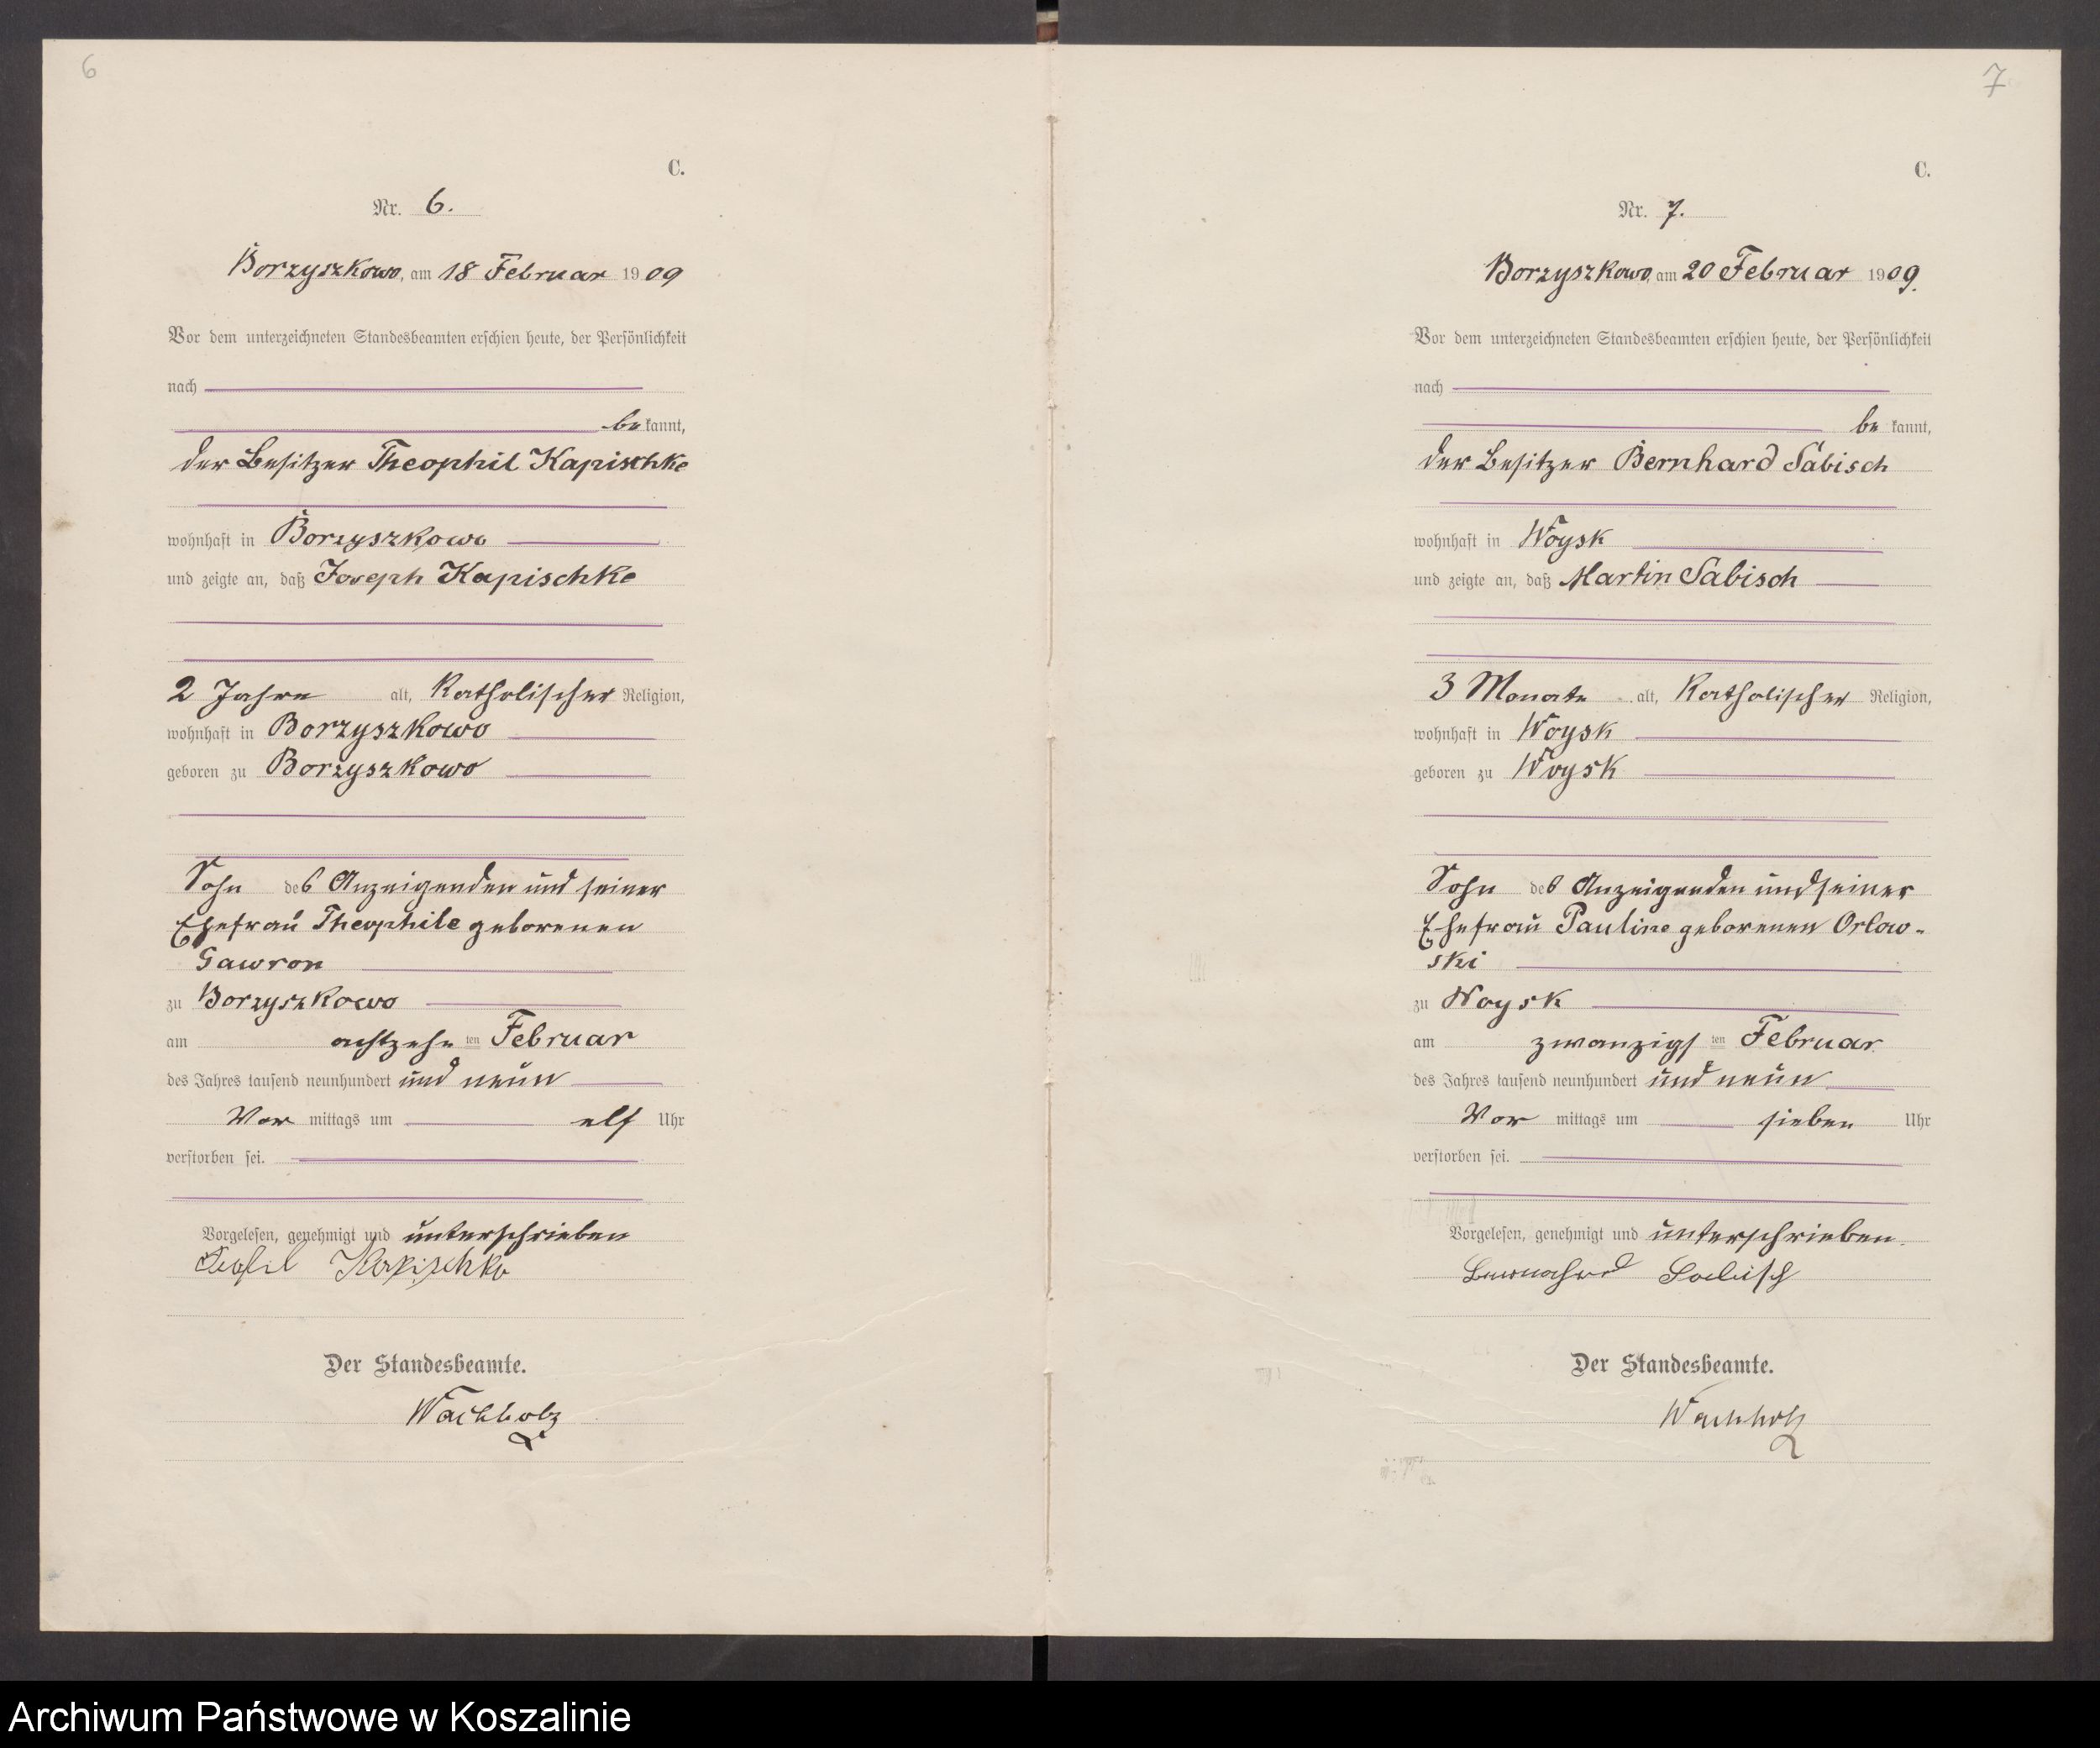 6
C.
Nr. 6.
Borzyszkowo, am 18 Februar 1909
Vor dem unterzeichneten Standesbeamten erschien heute, der Persönlichkeit
nach
bekannt,
der Besitzer Theophil Kapischke
wohnhaft in Borzyszkowo
und zeigte an, daß Joseph Kapischke
2 Jahre alt, Katholischer Religion,
wohnhaft in Borzyszkowo
geboren zu Borzyszkowo
Sohn des Anzeigenden und seiner
Ehefrau Theophile geborenen
Gawron
zu Borzyszkowo
am achtzehnten Februar
des Jahres tausend neunhundert und neun
Vor mittags um elf Uhr
verstorben sei.
Vorgelesen, genehmigt und unterschrieben
Teofil Kapischke
Der Standesbeamte.
Wachholz
7
C.
Nr. 7.
Borzyszkowo, am 20 Februar 1909.
Vor dem unterzeichneten Standesbeamten erschien heute, der Persönlichkeit
nach
bekannt,
der Besitzer Bernhard Sabisch
wohnhaft in Woysk
und zeigte an, daß Martin Sabisch
3 Monate alt, Katholischer Religion,
wohnhaft in Woysk
geboren zu Woysk
Sohn des Anzeigenden und seiner
Ehefrau Pauline geborenen Orlow-
ski
zu Woysk
am zwanzigsten Februar
des Jahres tausend neunhundert und neun
Vor mittags um sieben Uhr
verstorben sei.
Vorgelesen, genehmigt und unterschrieben.
Bernhard Sabisch
Der Standesbeamte.
Wachholz
Archiwum Państwowe w Koszalinie